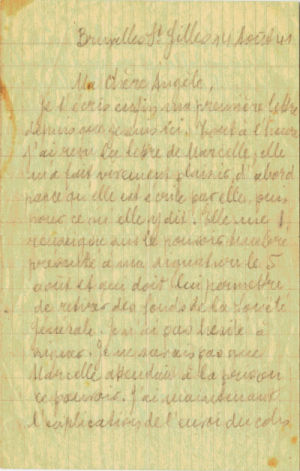 Bruxelles St Gilles 14 Août 41
Ma Chère Angèle,
Je t'écris enfin ma première lettre
depuis que je suis ici. Tout à l'heure
j'ai reçu la lettre de Marcelle, elle
m'a fait vivement plaisir, d'abord
parce qu'elle est écrite par elle, puis
pour ce qu'elle y dit. Elle me
sur le pouvoir
présenté à ma signature le 5
août et qui doit lui permettre
de retirer des fonds de la Société
Générale. J'ai pas hésité à
signer. Je ne savais pas que
Marcelle attendait à la prison
ce pouvoir. J'ai maintenant
l'explication de l'envoi du colis